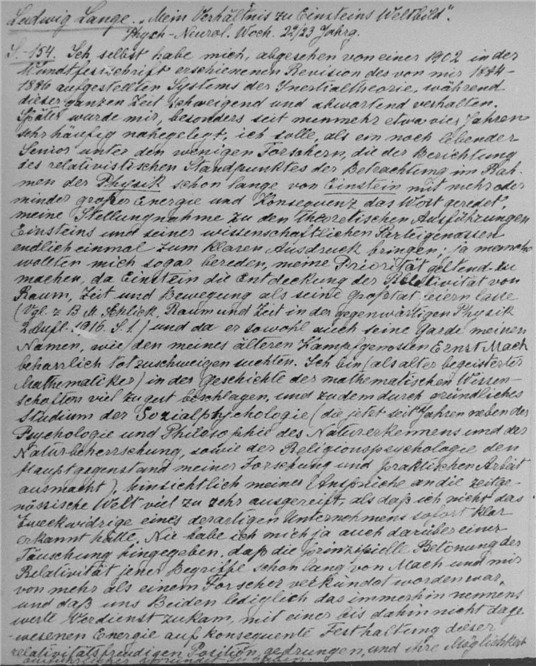 Ludwig Lange. „Mein Verhältnis zu Einsteins Weltbild".
Psych-Neurol. Woch. 22/23 Jahrg.
S. 154. Ich selbst habe mich, abgesehen von einer 1902 in der
Wundtfestschrift erschienenen Revision des von mir 1884-
1886 aufgestellten Systems der Inertialtheorie, während
dieser ganzen Zeit schweigend und abwartend verhalten.
Später wurde mir, besonders seit nunmehr etwa vier Jahren
sehr häufig nahegelegt, ich solle, als ein noch lebender
Senior unter den wenigen Forschern, die der Berichtigung
des relativistischen Standpunktes der Betrachtung im Rah-
men der Physik schon lange vor Einstein mit mehr oder
minder großer Energie und Konsequenz das Wort geredet,
meine Stellungnahme zu den theoretischen Ausführungen
Einsteins und seiner wissenschaftlichen Parteigenossen
endlich einmal zum klaren Ausdruck bringen; ja manche
wollten mich sogar bereden, meine Priorität geltend zu
machen, da Einstein die Entdeckung der Relativität von
Raum, Zeit und Bewegung als seine Großtat feiern lasse
(Vgl. z B M. Schlick, Raum und Zeit in der gegenwärtigen Physik
2. Aufl. 1916. S. 1) und da er sowohl auch seine Garde meinen
Namen, wie den meines älteren Kampfgenossen Ernst Mach
beharrlich totzuschweigen suchten. Ich bin (als alter begeisterter
Mathematiker) in der Geschichte der mathematischen Wissen-
schaften viel zu gut beschlagen, und zudem durch gründliches
Studium der Sozialpsychologie (die jetzt seit Jahren neben der
Psychologie und Philosophie des Naturerkennens und der
Naturbeherrschung, sowie der Religionspsychologie den
Hauptgegenstand meiner Forschung und praktischen Arbeit
ausmacht), hinsichtlich meiner Ansprüche an die zeitge-
nössische Welt viel zu sehr ausgereift, als daß ich nicht das
Zweckwidrige eines derartigen Unternehmens sofort klar
erkannt hätte. Nie habe ich mich ja auch darüber einer
Täuschung hingegeben, daß die prinzipielle Betonung der
Relativität jener Begriffe schon lang vor Mach und mir
von mehr als einem Forscher verkündet worden war,
und daß uns Beiden lediglich das immerhin nennens
werte Verdienst zukam, mit einer bis dahin nicht dage-
wesenen Energie auf konsequente Festhaltung dieser
relativitätsfreudigen Position gedrungen, und ihre Möglichkeit